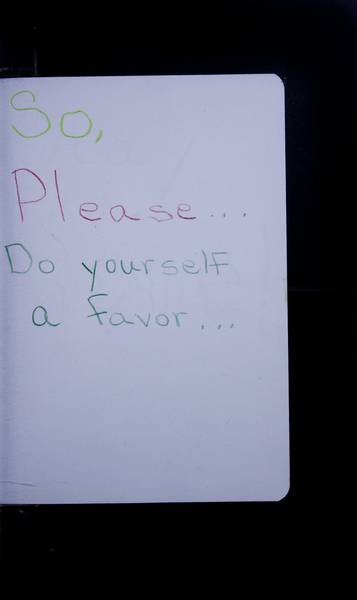 So,
Please...
Do yourself
a favor...